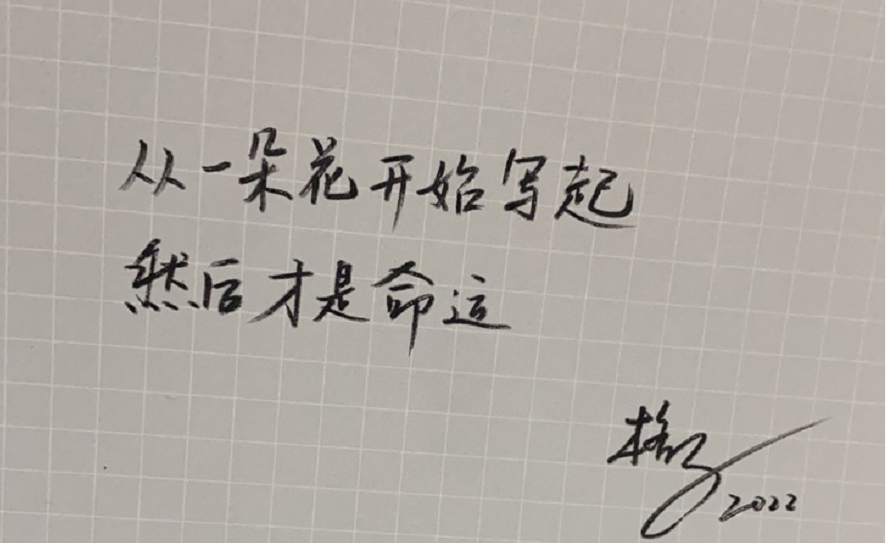 从一朵花开始写起
然后才是命运
2022